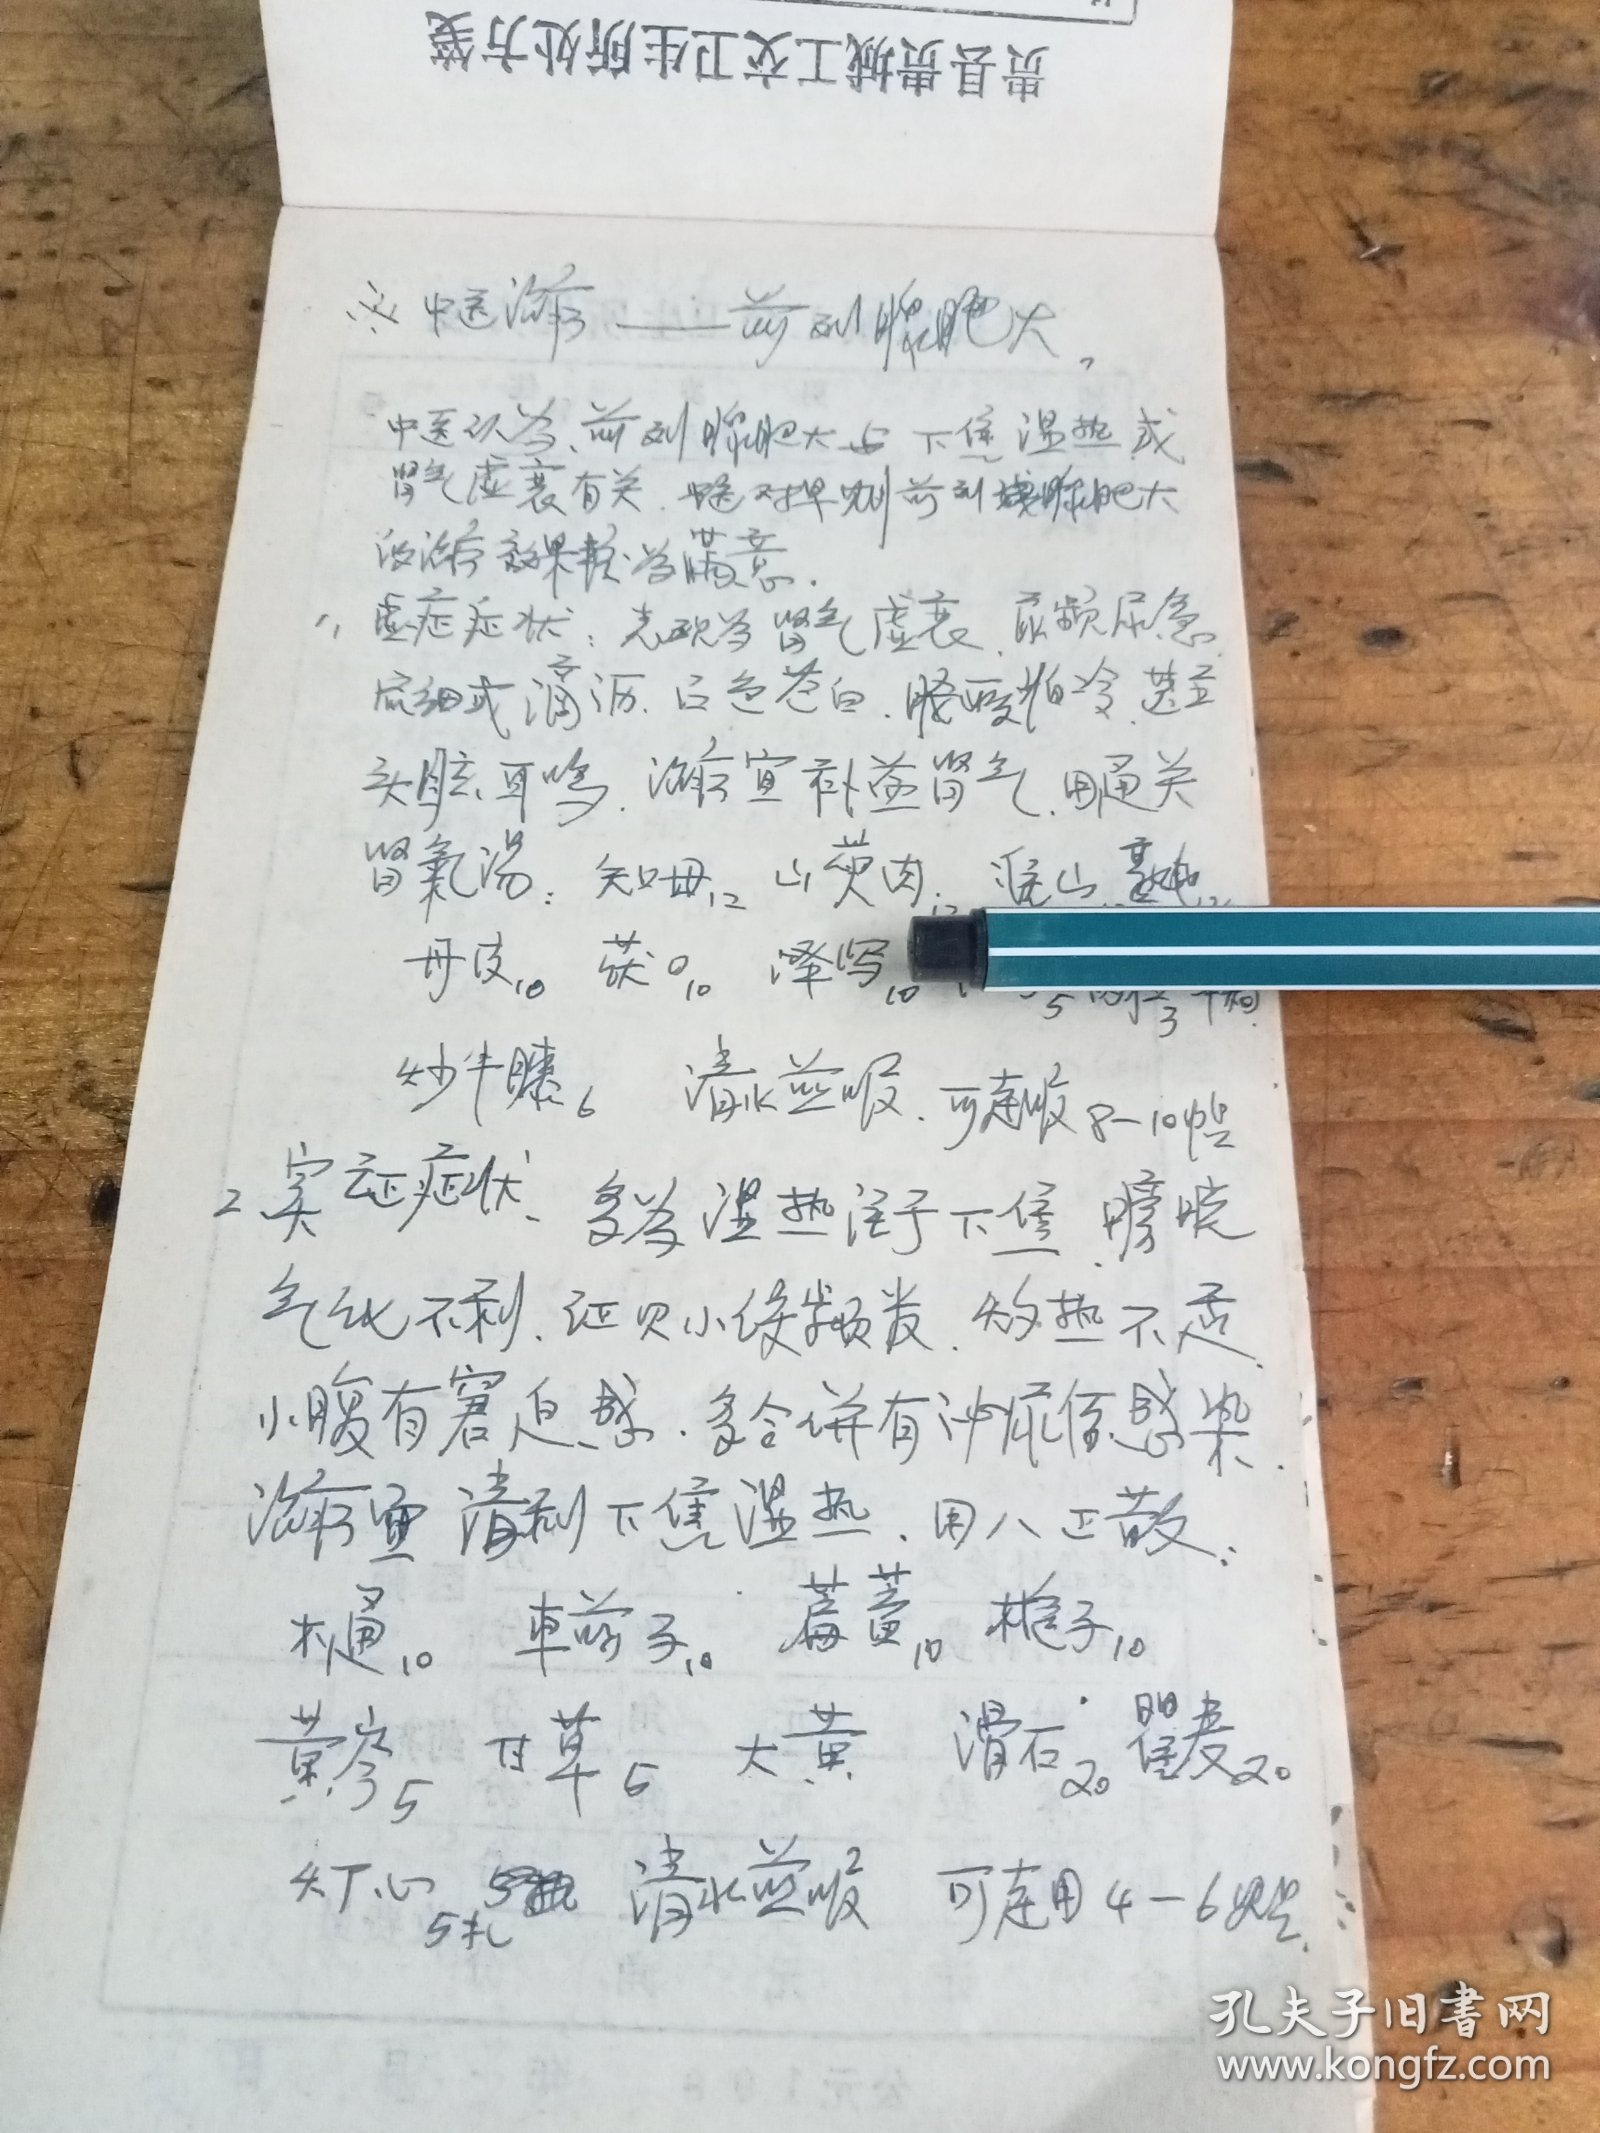 贵县贵城工交卫生所处方笺
※中医治疗——前列腺肥大,
中医认为、前列腺肥大与下焦湿热或
肾气虚衰有关.中医对早期前列腺肥大
治疗效果较为满意.
1, 虚症症状: 肾气虚衰、尿频尿急
尿细或滴沥.面色苍白.腰酸怕冷.甚至
头眩耳鸣.治疗宜补益肾气.用通关
肾氣汤: 知母12 山萸肉12 淮山 熟地
丹皮10 茯0 10 泽写10 5 肉桂3
炒牛膝6 清水煎服.可连服8-10帖
2、实证症状、多为湿热注于下焦.膀胱
气化不利、证见小便频发.灼热不适.
小腹有窘迫感.多合併有泌尿系感染.
治疗宜清利下焦湿热.用八正散:
木通10 車前子10 萹蓄10 栀子10
黄芩5 甘草5 大黄 滑石20 瞿麦20
灯心5扎 清水煎服 可连用4-6
孔夫子旧书网
www.kongfz.com